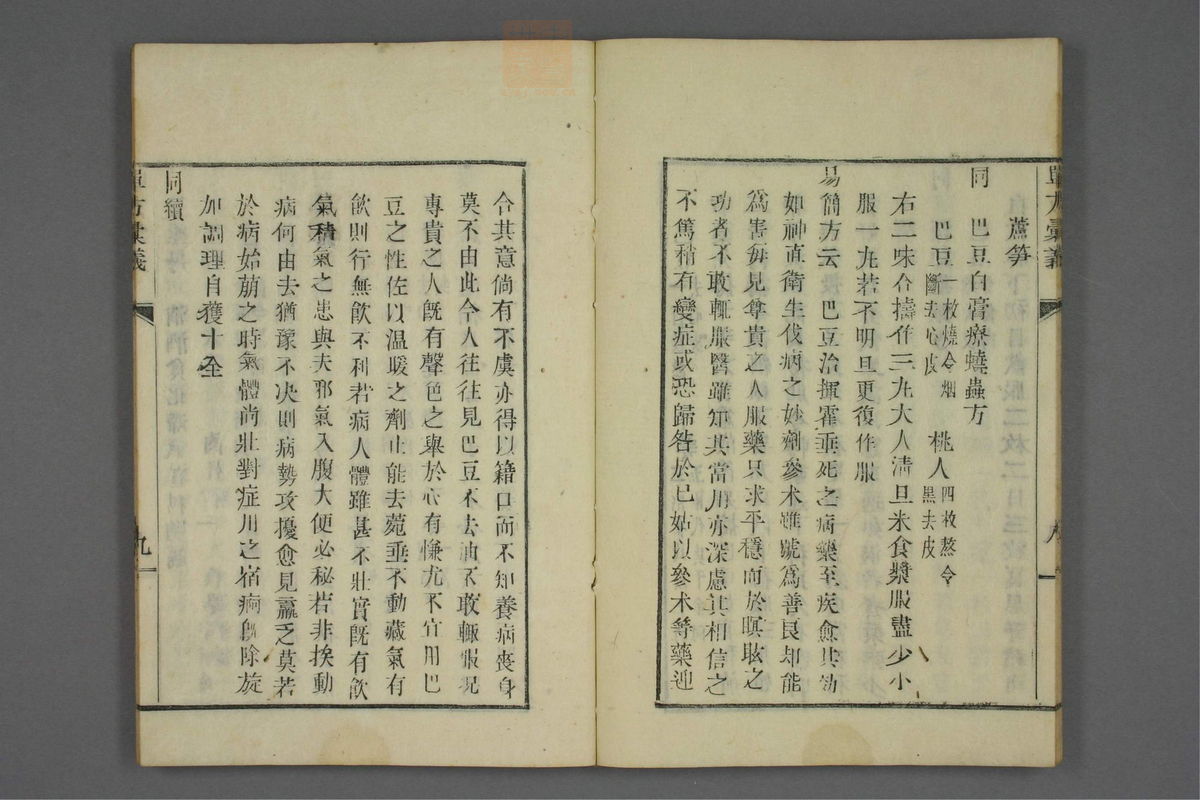 蘆筍
同　巴豆白膏療蟯蟲方
巴豆一枚燒令烟斷去心皮　桃人四枚熬令黑去皮
右二味合擣作三丸大人清旦未食漿服盡少小
服一丸若不明旦更復作服
易簡方云　巴豆治揮霍垂死之病藥至疾愈其効
如神真衛生伐病之妙劑參术雖號為善良却能
為害每見尊貴之人服藥只求平穩而於暝眩之
功者不敢輒服醫雖知其當用亦深慮其相信之
不篤稍有變症或恐歸咎於己姑以參术等藥迎
合其意倘有不虞亦得以籍口而不知養病喪身
莫不由此今人往往見巴豆不去油不敢輒服況
專貴之人既有聲色之舉於心有慊尤不宜用巴
豆之性佐以温暖之劑止能去菀垂不動藏氣有
飲則行無飲不利若病人體雖甚不壯實既有飲
氣積氣之患與夫邪氣入腹大便必秘若非挨動
病何由去猶豫不决則病勢攻擾愈見羸乏莫若
於病始萠之時氣體尚壯對症用之宿痾既除旋
加調理自獲十全
同續
單方彙義
九